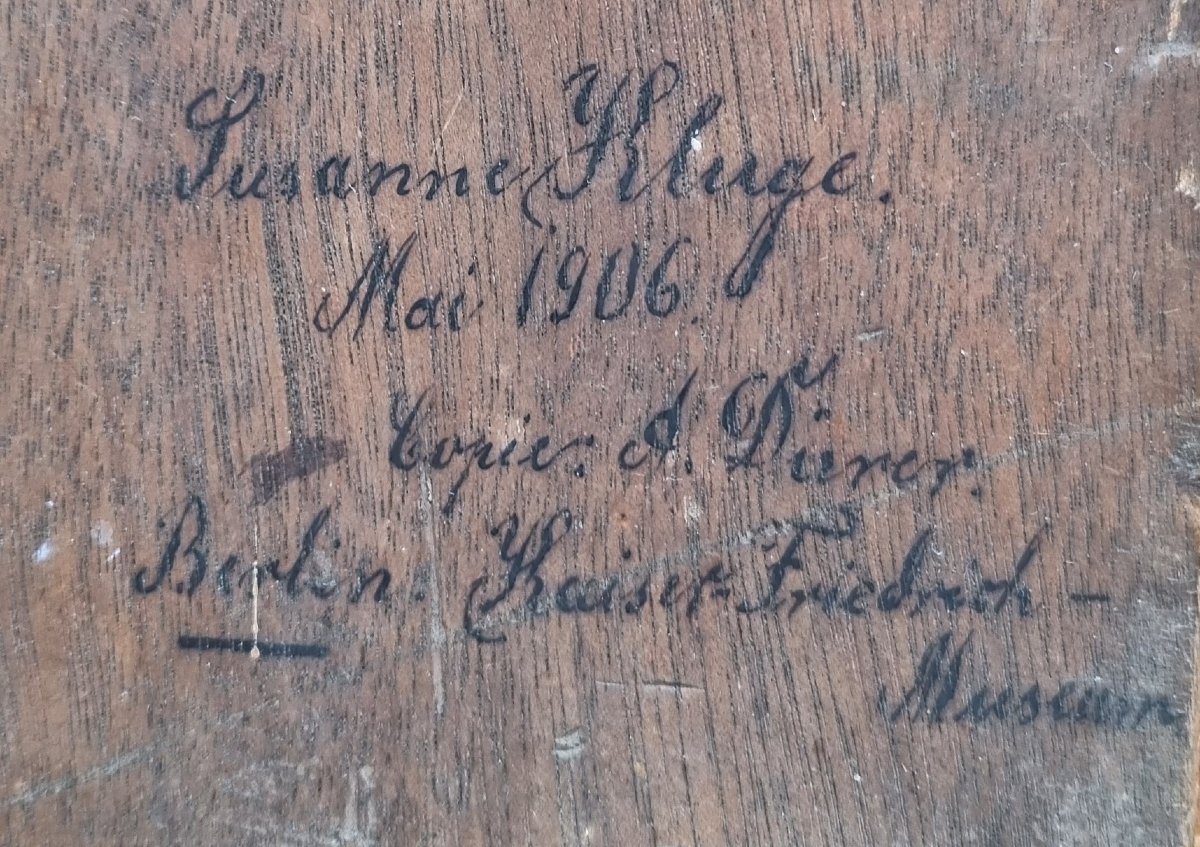 Susanne Kluge.
Mai 1906.
Copie: A. Dürer.
Berlin. Kaiser-Friedrich-
Museum